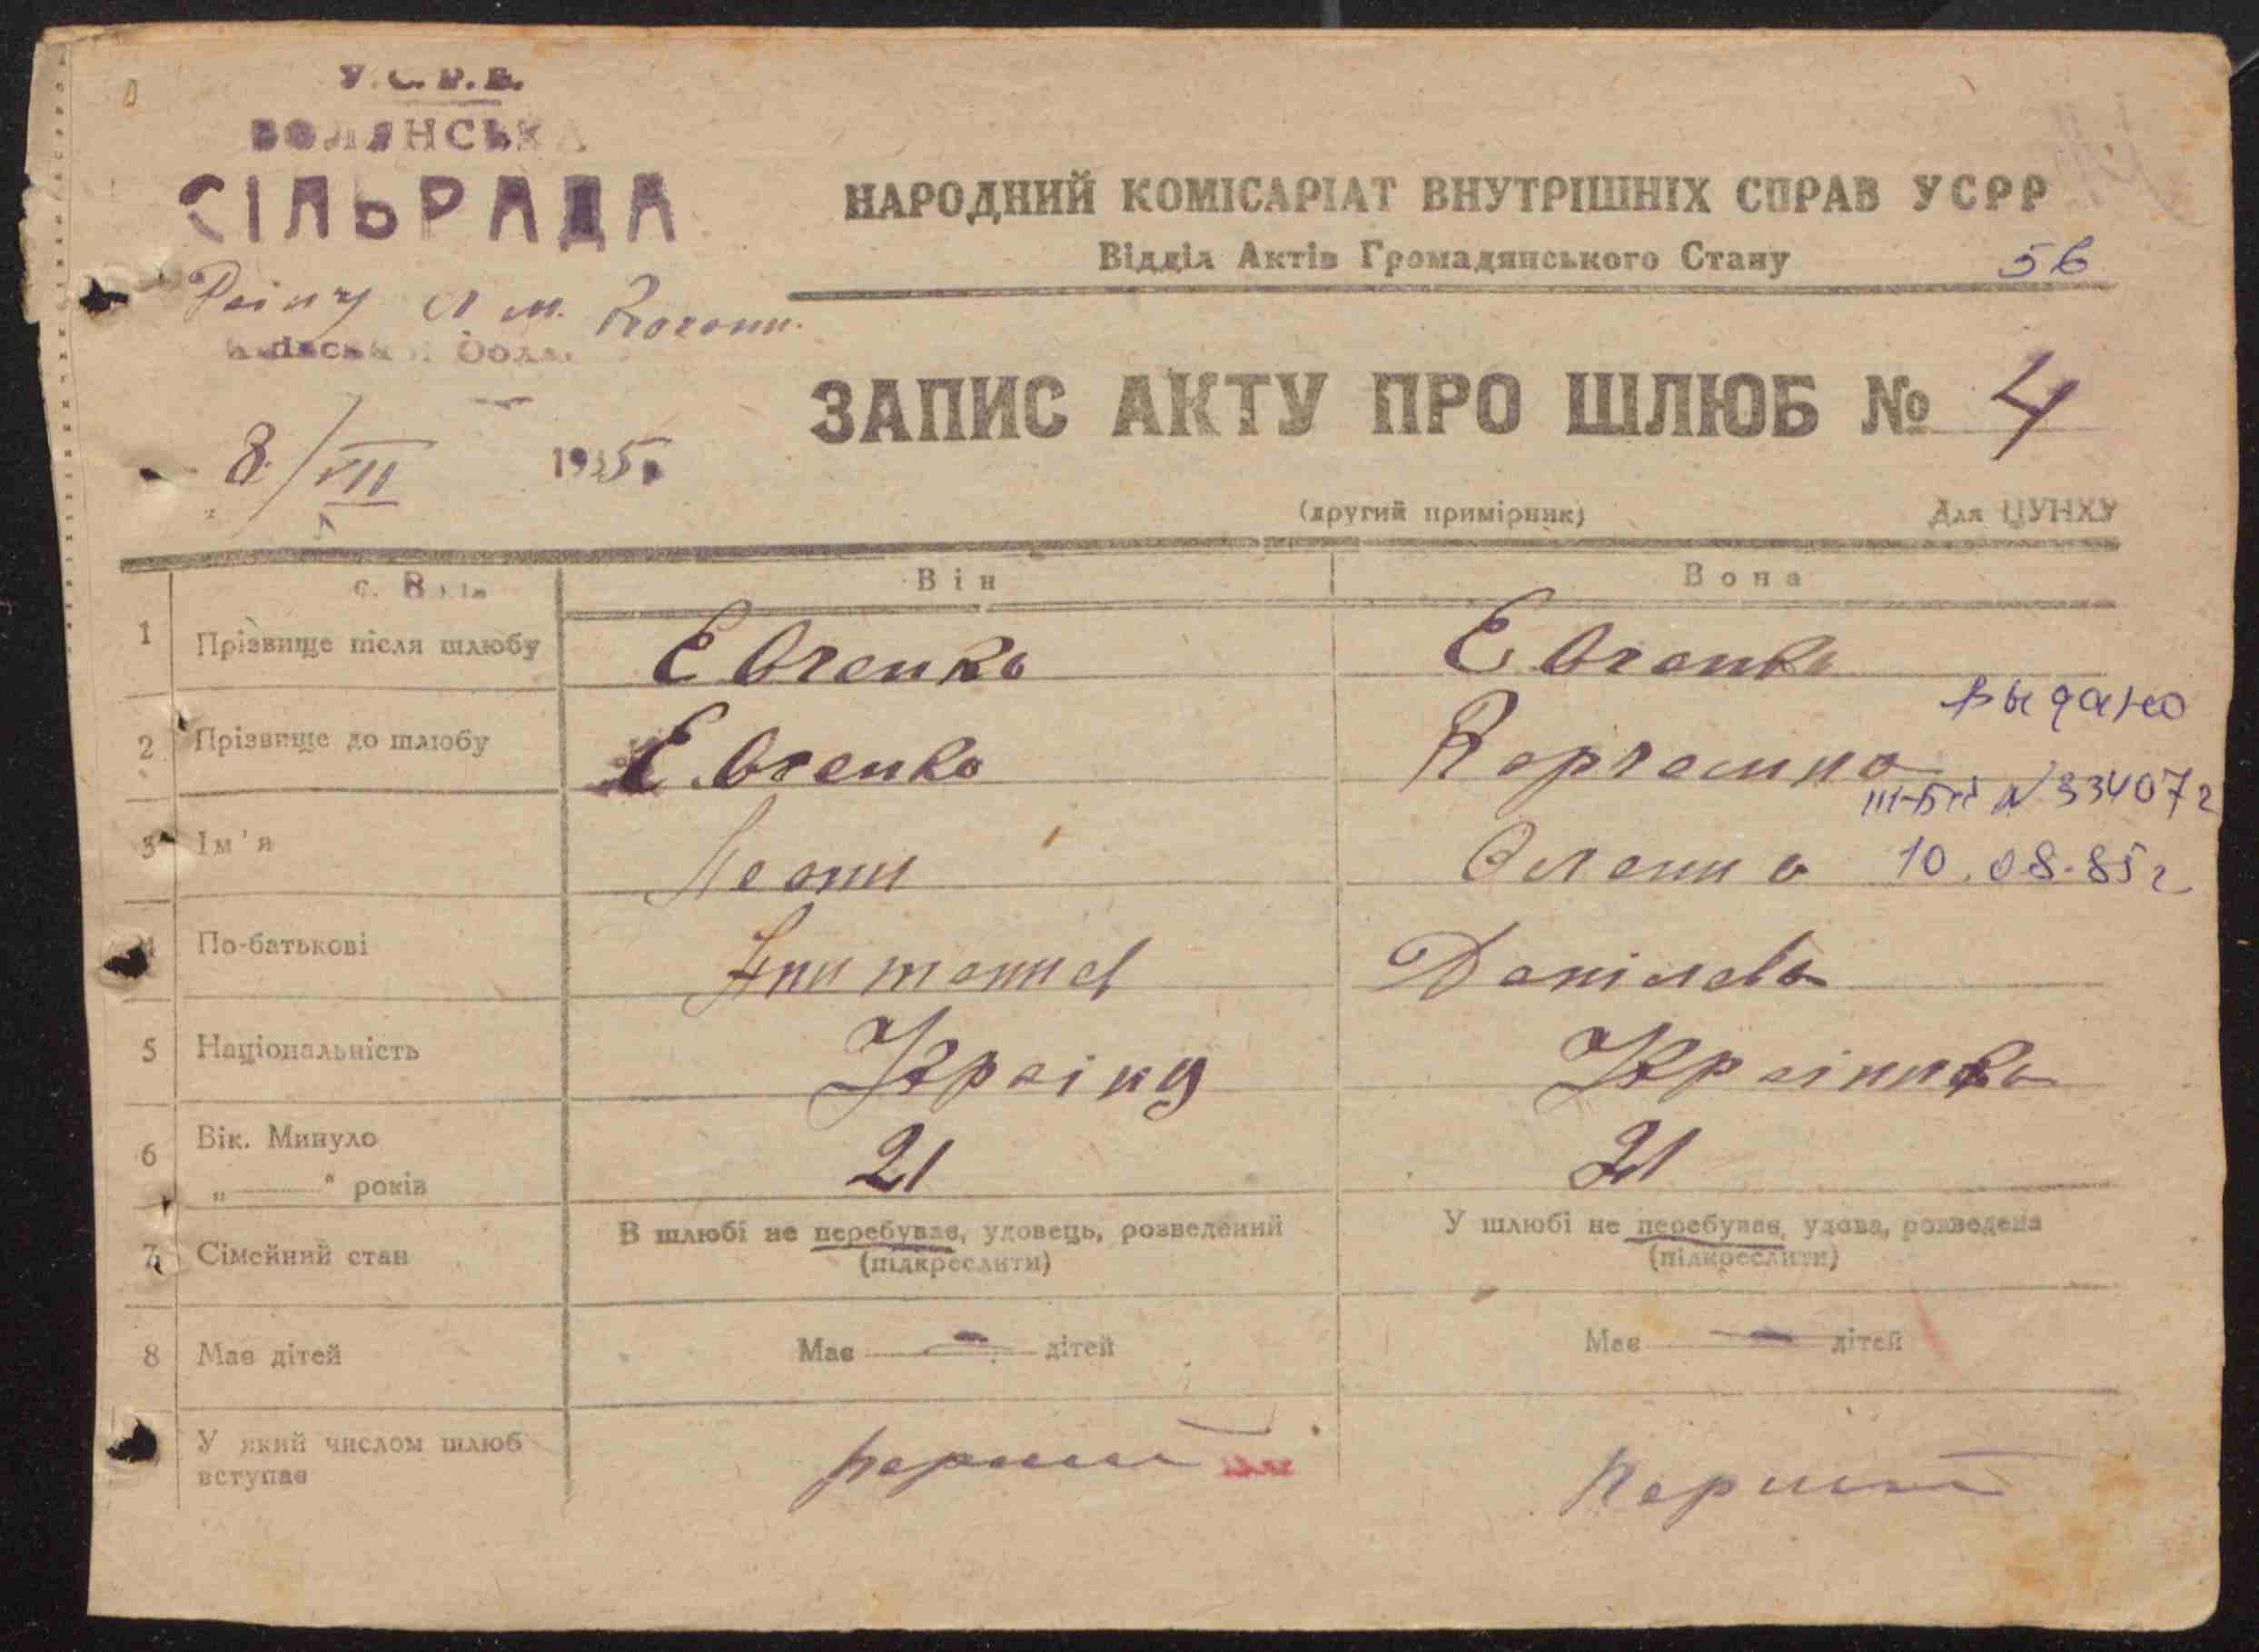 У.С.Р.Р.
ВОЛЯНСЬКА
СІЛЬРАДА
Району Л М. Каганов.
Київської Обл.
НАРОДНИЙ КОМІСАРІАТ ВНУТРІШНІХ СПРАВ УСРР
Відділ Актів Громадянського Стану
56
ЗАПИС АКТУ ПРО ШЛЮБ № 4
8/VII 1935
(другий примірник) Для ЦУНХУ
Він Вона
1 Прізвище після шлюбу Евченко Евченко
выдано
2 Прізвище до шлюбу Евченко
№ 334072
3 Ім'я Олена 10.08.85г
4 По-батькові Данілова
5 Національність Україн Українка
6 Вік. Минуло
„ — “ років 21 21
7 Сімейний стан В шлюбі не перебуває, удовець, розведений У шлюбі не перебуває, удова, розведена
(підкреслити) (підкреслити)
8 Має дітей Має — дітей Має — дітей
У який числом шлюб
вступає перший перший